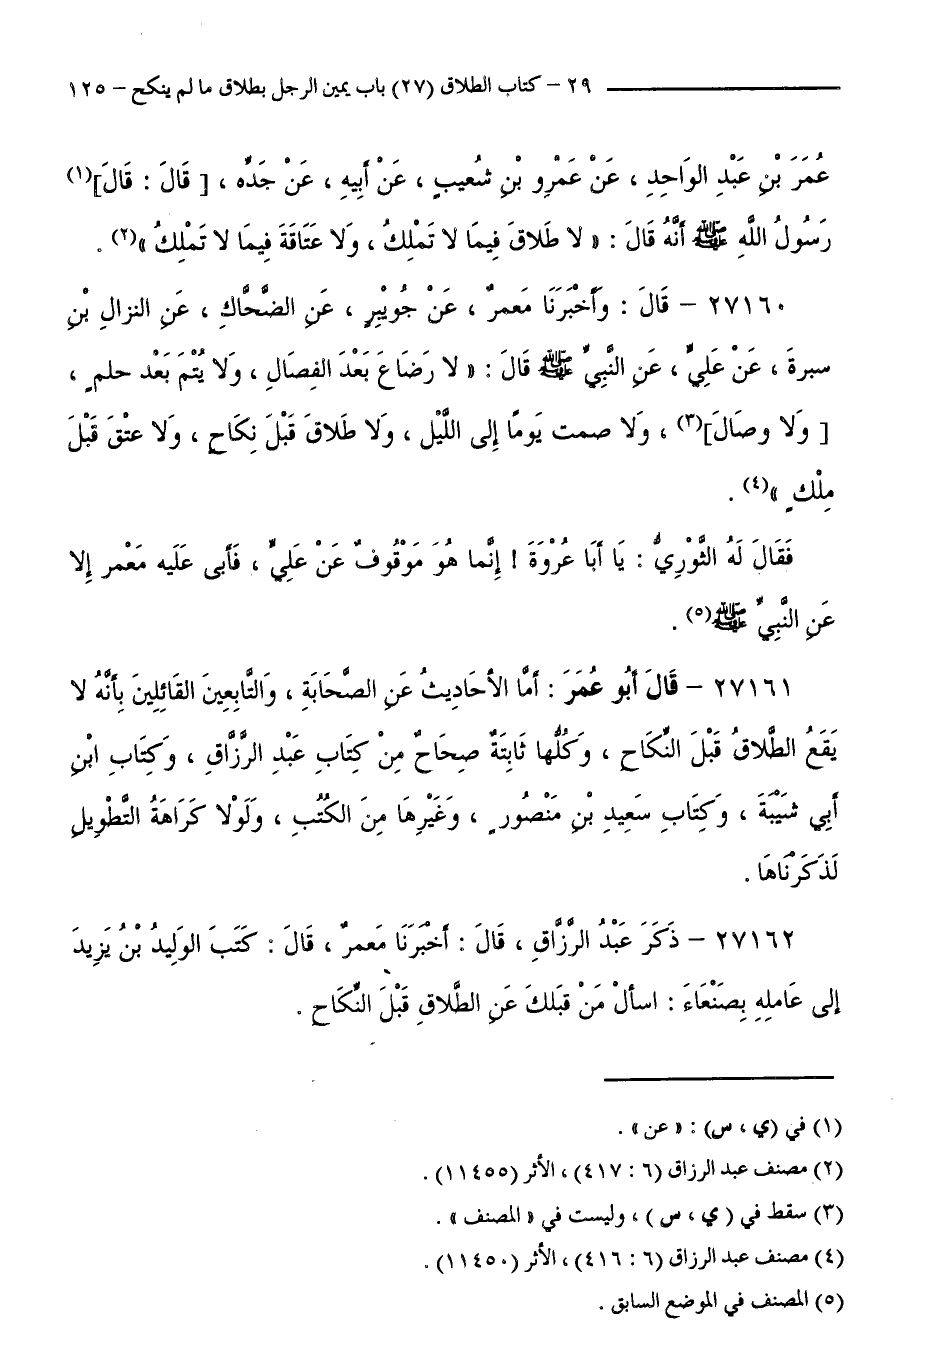 ٢٩ – كتاب الطلاق (٢٧) باب يمين الرجل بطلاق ما لم ينكح – ١٢٥
عُمَرَ بْنِ عَبْدِ الوَاحِدِ ، عَنْ عَمْرِو بْنِ شُعيبٍ ، عَنْ أَبِيهِ ، عَنْ جَدِّه ، [ قَالَ : قَالَ](١)
رَسُولُ اللَّهِ ﷺ أَنَّهُ قَالَ : « لا طَلاقَ فِيمَا لا تَمْلِكُ ، وَلا عَتَاقَةَ فِيمَا لا تَمْلِكُ »(٢) .
٢٧١٦٠ – قَالَ : وَأَخْبَرَنَا مَعمرٌ ، عَنْ جُويْبِرٍ ، عَنِ الضَّحَّاكِ ، عَنِ النزالِ بْنِ
سبرةَ ، عَنْ عَلِيٍّ ، عَنِ النَّبِيِّ ﷺ قَالَ : « لا رَضَاعَ بَعْدَ الفِصَالِ ، وَلا يُتْمَ بَعْد حلمٍ ،
[ وَلا وصَالَ](٣) ، وَلا صمت يَومًا إِلى اللَّيْلِ ، وَلا طَلاقَ قَبْلَ نِكَاحٍ ، وَلا عتْقَ قَبْلَ
مِلْكٍ »(٤) .
فَقَالَ لَهُ الثَّوْرِيُّ : يَا أَبَا عُرْوَةَ ! إِنَّما هُوَ مَوْقُوفٌ عَنْ عَلِيٍّ ، فَأَبى عَلَيه مَعْمر إِلا
عَنِ النَّبِيِّ ﷺ(٥) .
٢٧١٦١ – قَالَ أَبُو عُمَرَ : أَمَّا الأحَاديثُ عَنِ الصَّحَابَةِ ، وَالتَّابِعِينَ القَائِلِينَ بِأَنَّهُ لا
يَقَعُ الطَّلاقُ قَبْلَ النِّكَاحِ ، وَكُلُّها ثَابِتَةٌ صِحَاحٌ مِنْ كِتَابِ عَبْدِ الرَّزَّاقِ ، وَكِتَابِ ابْنِ
أَبِي شَيْبَةَ ، وَكِتَابِ سَعِيدِ بْنِ مَنْصُورٍ ، وَغَيْرِهَا مِنَ الكُتُبِ ، وَلَوْلا كَرَاهَةُ التَّطْوِيلِ
لَذَكَرْنَاهَا .
٢٧١٦٢ – ذَكَرَ عَبْدُ الرَّزَّاقِ ، قَالَ : أَخْبَرَنَا مَعمرٌ ، قَالَ : كَتَبَ الوَلِيدُ بْنُ يَزِيدَ
إِلى عَامِلِهِ بِصَنْعَاءَ : اسألْ مَنْ قبَلكَ عَنِ الطَّلاقِ قَبْلَ النِّكَاحِ .
(١) في (ي ، س) : « عن » .
(٢) مصنف عبد الرزاق (٦ : ٤١٧) ، الأثر (١١٤٥٥) .
(٣) سقط في ( ي ، س ) ، وليست في « المصنف » .
(٤) مصنف عبد الرزاق (٦ : ٤١٦) ، الأثر (١١٤٥٠) .
(٥) المصنف في الموضع السابق .